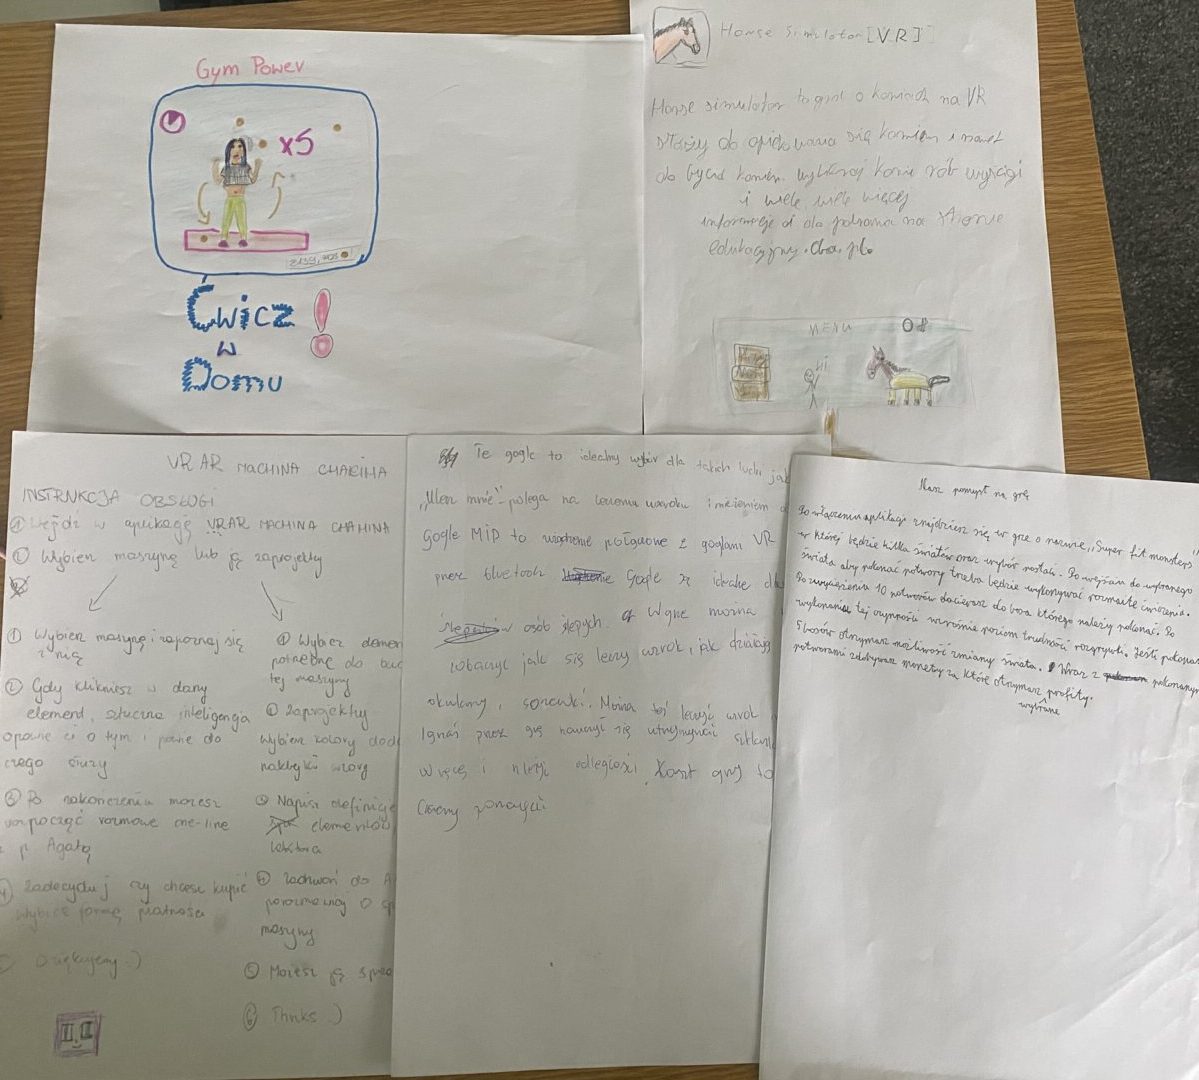 Gym Power
x5
Ćwicz
w
Domu
Horse Simulator [VR]
Horse simulator to gra o koniach na VR
służy do opiekowania się koniem i nawet
do bycia koniem wybieraj konie rób wyścigi
i wiele wiele więcej
informacje na stronie
edukacyjny.cba.pl.
MENU
Hi
VR AR MACHINA CHAKIHA
INSTRUKCJA OBSŁUGI
Wejdź w aplikację VR AR MACHINA
Wybierz maszynę lub ją zaprojektuj
① Wybierz maszynę i zapoznaj się
z nią
② Gdy klikniesz w dany
element, sztuczna inteligencja
opowie ci o tym i powie do
czego służy
③ Po zakończeniu możesz
rozpocząć rozmowę one-line
z p. Agatą
Zadecyduj czy chcesz kupić
Wybierz formę płatności
Dziękujemy :)
① Wybierz
potrzebne do
tej maszyny
Zaprojektuj
wybierz kolory
naklejki wzory
Napisz definicje
elementów
lektora
Zadzwoń do
porozmawiaj o
maszyny
⑤ Możesz ją
⑥ Thnks :)
Te gogle to idealny wybór dla takich ludzi jak
„Ulecz mnie" polega na leczeniu wzroku i
Gogle MIP to urządzenie połączone z goglami VR
przez bluetooh Gogle są idealne dla
osób ślepych. W grze można
zobaczyć jak się leczy wzrok, jak działają
okulary, soczewki. Można też leczyć wzrok
Ignaś przez grę nauczył się utrzymywać
w ręcę i mierzyć odległości. Koszt gry to
Nasz pomysł na grę
Po włączeniu aplikacji znajdziesz się w grze o nazwie „Super fit monsters"
w której będzie kilka światów oraz wybór postaci. Po wejściu do wybranego
świata aby pokonać potwory trzeba będzie wykonywać rozmaite ćwiczenia.
Po zwyciężeniu 10 potworów docierasz do bossa którego należy pokonać. Po
wykonaniu tej czynności wzrośnie poziom trudności rozgrywki. Jeśli pokonasz
5 bossów otrzymasz możliwość zmiany świata. Wraz z pokonanymi
potworami zdobywasz monety za które otrzymasz profity.
wybrane